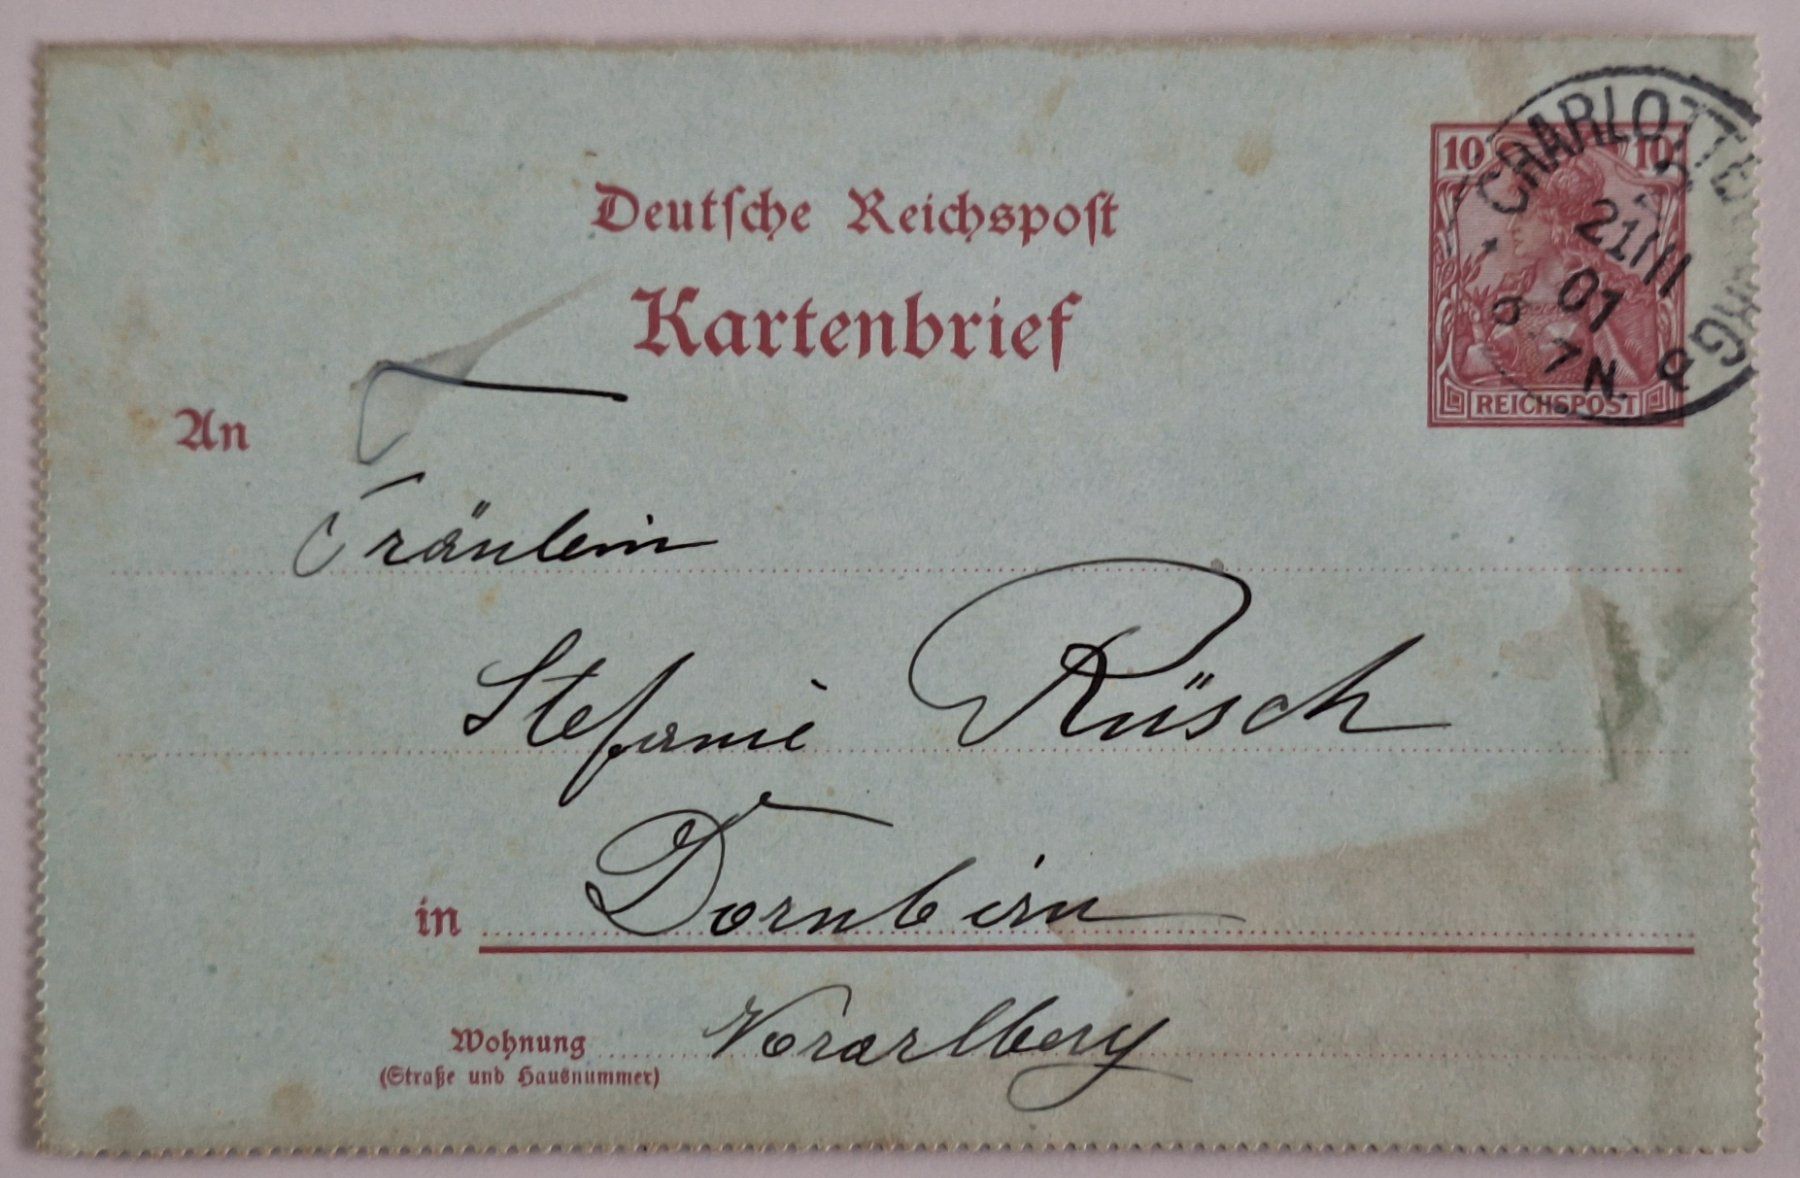 Deutsche Reichspost
Kartenbrief
10 10
REICHSPOST
CHARLOTTENBURG
21/11
01
6-7N.
An
Fräulein
Stefanie Rüsch
in Dornbirn
Wohnung Vorarlberg
(Straße und Hausnummer)